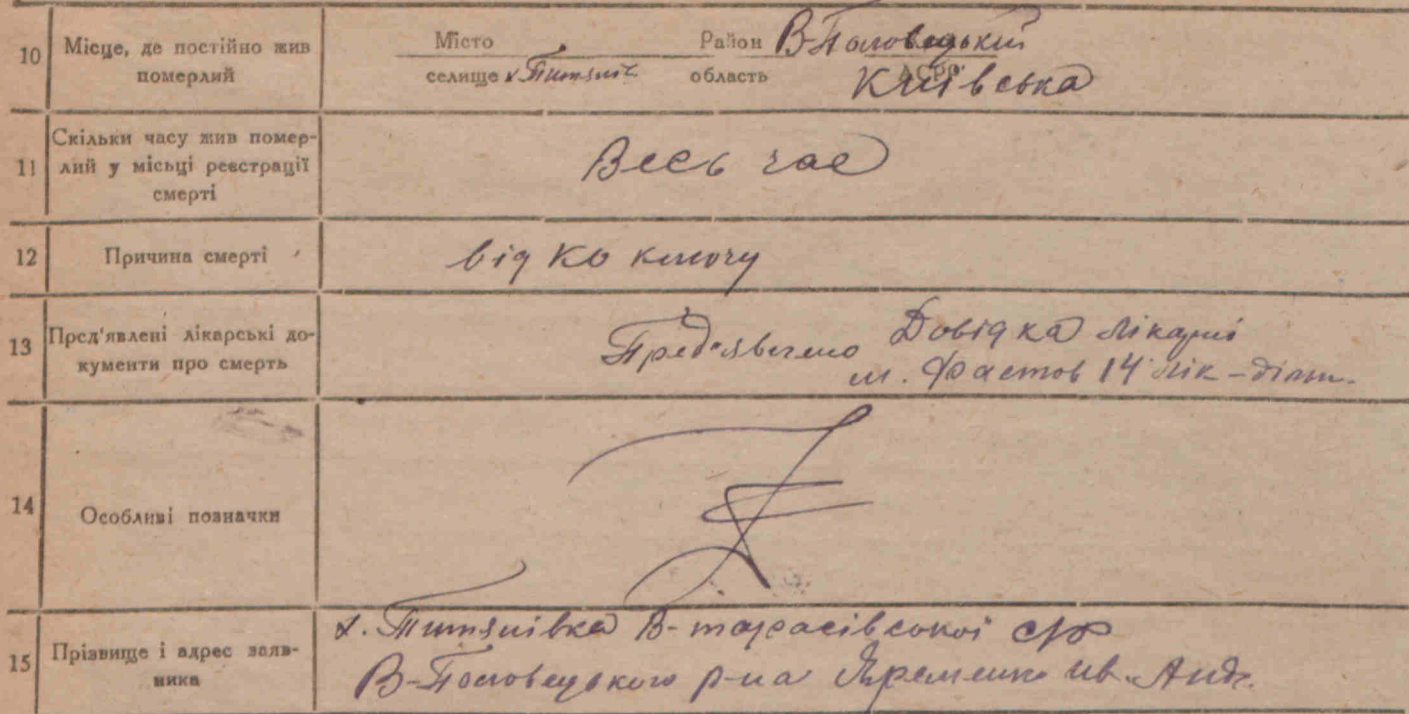 10 Місце, де постійно жив померлий
Місто Район В-Половецький
селище х Титяніч область АСРР Київська
11 Скільки часу жив помер-
лий у місьці реєстрації
смерті
Весь час
12 Причина смерті
від коключу
13 Пред'явлені лікарські до-
кументи про смерть
Пред'явлено Довідка лікарні
м. Фастов 14 лік-діт.
14 Особливі позначки
15 Прізвище і адрес заяв-
ника
х. Титянівка В-тарасівської с/р
В-Половецького р-на Яременко Ив. Андр.